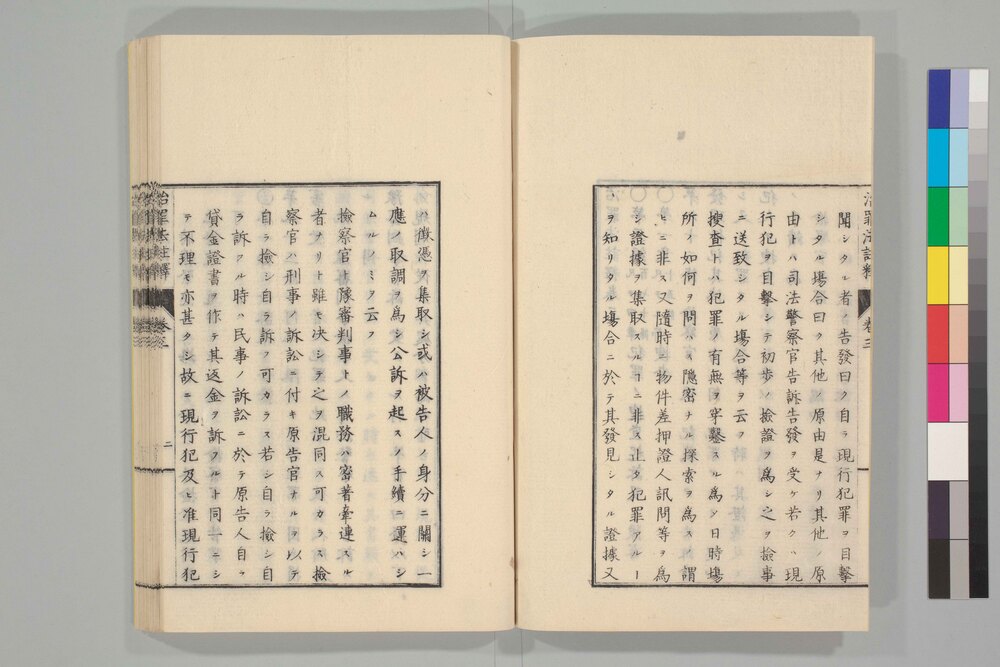 治罪法註釋 卷三
聞シタル者ノ告發曰ク自ラ現行犯罪ヲ目擊
シタル塲合曰ク其他ノ原由是ナリ其他ノ原
由トハ司法警察官告訴告發ヲ受ケ若クハ現
行犯ヲ目擊シテ初步ノ檢證ヲ爲シ之ヲ檢事
ニ送致シタル塲合等ヲ云フ
搜査トハ犯罪ノ有無ヲ穿鑿スル爲メ日時塲
所ノ如何ヲ問ハス隱密ナル探索ヲ爲スノ謂
ヒニ非ス又隨時ニ物件差押證人訊問等ヲ爲
シ證據ヲ集取スルヿニ非ス止タ犯罪アルー
ヲ知リタル塲合ニ於テ其發見シタル證據又
ハ徵憑ヲ集取シ或ハ被告人ノ身分ニ關シ一
應ノ取調ヲ爲シ公訴ヲ起スノ手續ニ運ハシ
ムルノミヲ云フ
檢察官ト豫審判事トノ職務ハ密著牽連スル
者ナリト雖モ决シテ之ヲ混同ス可カラス檢
察官ハ刑事ノ訴訟ニ付キ原告官ナルヲ以テ
自ラ檢シ自ラ訴フ可カラス若シ自ラ檢シ自
ラ訴フル時ハ民事ノ訴訟ニ於テ原告人自ラ
貸金證書ヲ作テ其返金ヲ訴フルト同一ニシ
テ不理モ亦甚タシ故ニ現行犯及ヒ准現行犯
治罪法註釋 卷三 二